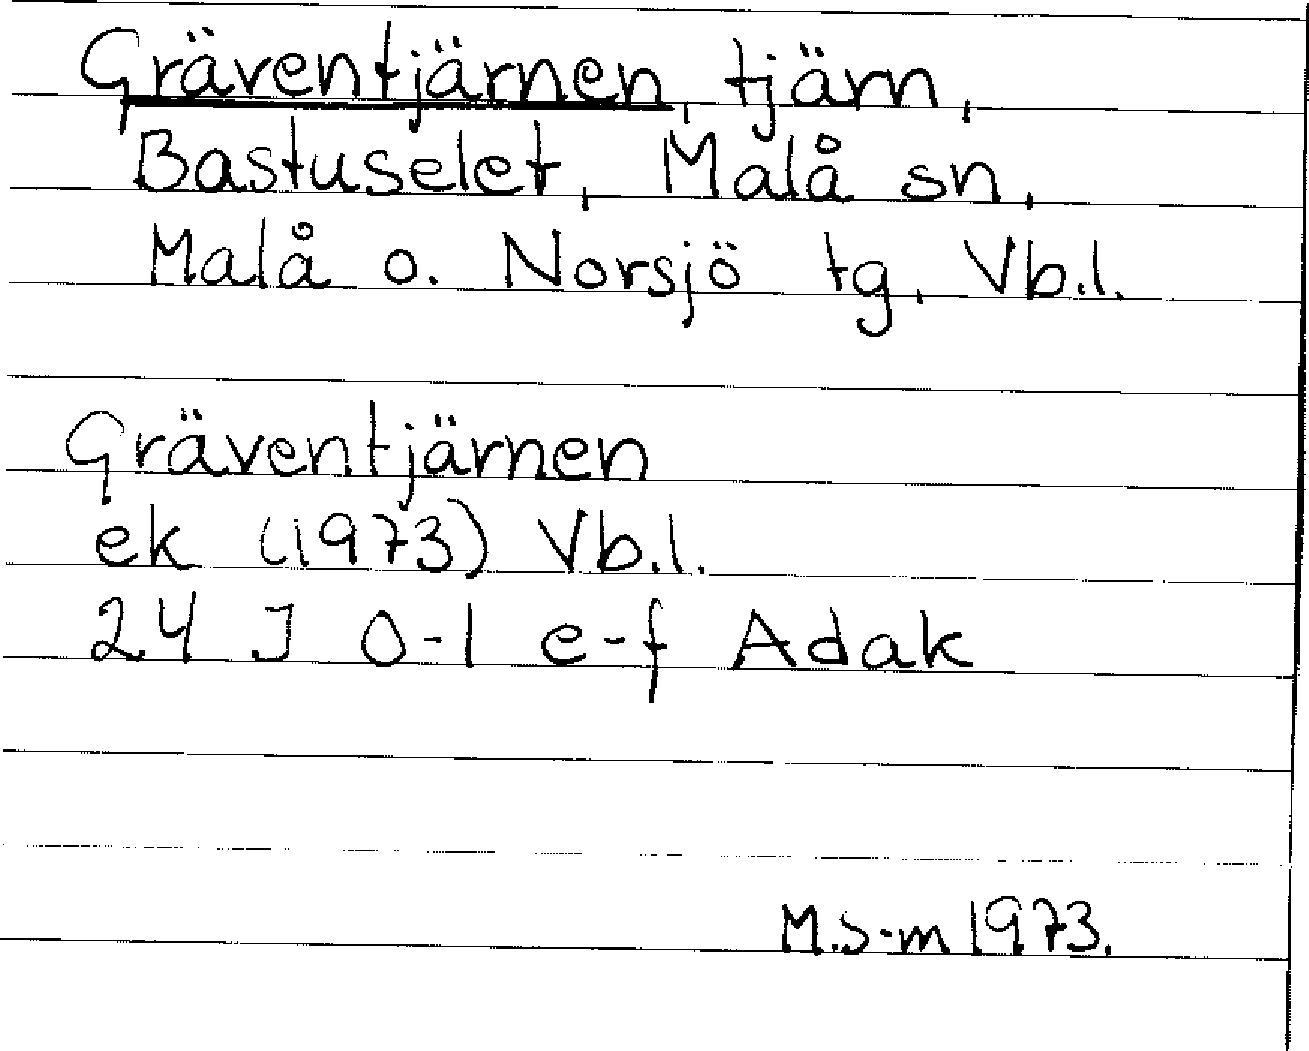 Gräventjärnen, tjärn,
Bastuselet, Malå sn,
Malå o. Norsjö tg, Vb.l.
Gräventjärnen
ek (1973) Vb.l.
24 J 0-1 e-f Adak
M.s-m 1973.